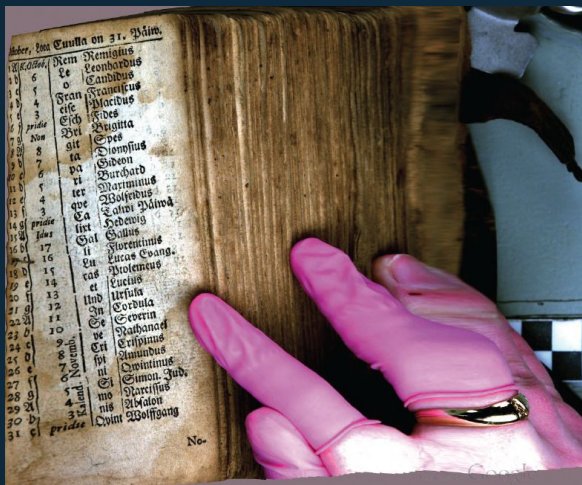 tober, Lota Cuulla on 31. Päiw.
1 A K. Octob. Rem Remigius
b 6 Le Leonhardus
3 c 5 o Candidus
4 d 4 Fran Franciscus
5 e 3 cisc Placidus
6 f pridie Esch Fides
7 g Non Bri Brigitta
8 A 8 git Spes
9 b 7 ta Dionysius
10 c 6 pa Gideon
11 d 5 ri Burchard
12 e 4 ter Maximinus
13 f 3 qve Wolfridus
14 g pridie Ca Talwi Päiwä
15 A Idus lixt Hedewig
16 b 17 Gal Gallus
16 li Florentinus
18 d 15 Lu Lucas Evang.
19 e 14 cas Ptolemeus
20 f 13 et Lucius
21 g 12 Und Ursula
22 A 11 Cordula
23 b 10 Se Severin
24 c 9 ve Nathanael
25 d 8 Cri Crispinus
26 e 7 spi Amandus
27 f 6 ni Qwintinus
28 g 5 Si Simon. Jud.
29 A 4 mo Narcissus
30 b 3 nis Absalon
31 c pridie Qvint Wolffgang
Kalend. Novemb.
No-